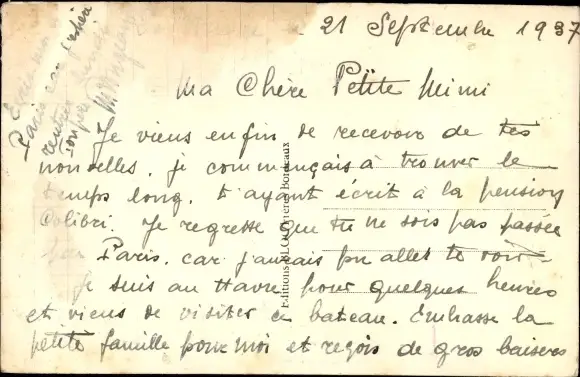 21 Septembre 1937
Ma Chère Petite Mimi
Je viens enfin de recevoir de tes
nouvelles. je commençais à trouver le
temps long. t'ayant écrit à la pension
Colibri. Je regrette que tu ne sois pas passée
par Paris. car j'aurais pu aller te voir
Je suis au Havre pour quelques heures
et viens de visiter ce bateau. Embrasse la
petite famille pour moi et reçois de gros baisers
Paris car j'espère
rentrer
Editions Bordeaux